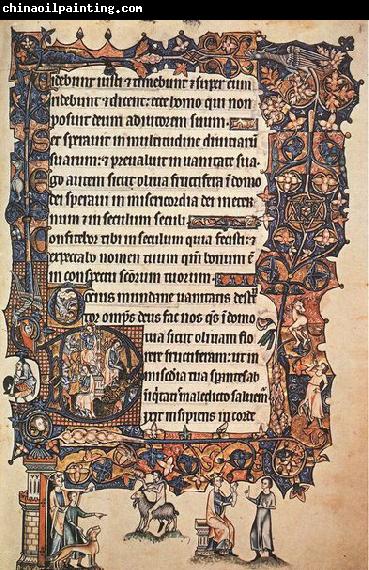 chinaoilpainting.com
idebunt iusti ⁊ timebunt ⁊ super eum
ridebunt ⁊ dicent: ecce homo qui non
posuit deum adiutorem suum.
et sperauit in multitudine diuiciarū
suarum: ⁊ preualuit in uanitate sua
go autem sicut oliua fructifera ī domo
dei speraui in misericordia dei mei in eter
num ⁊ in seculum seculi
onfitebor tibi in seculum quia fecisti: ⁊
expectabo nomen tuum qm̄ bonum ē
in conspectu scōrum tuorum
mundane uanitatis
omps deus fac nos qs ī domo
tua sicut oliuam
fructiferam: ut in
tua
insipiens in corde
chinaoilpainting.com